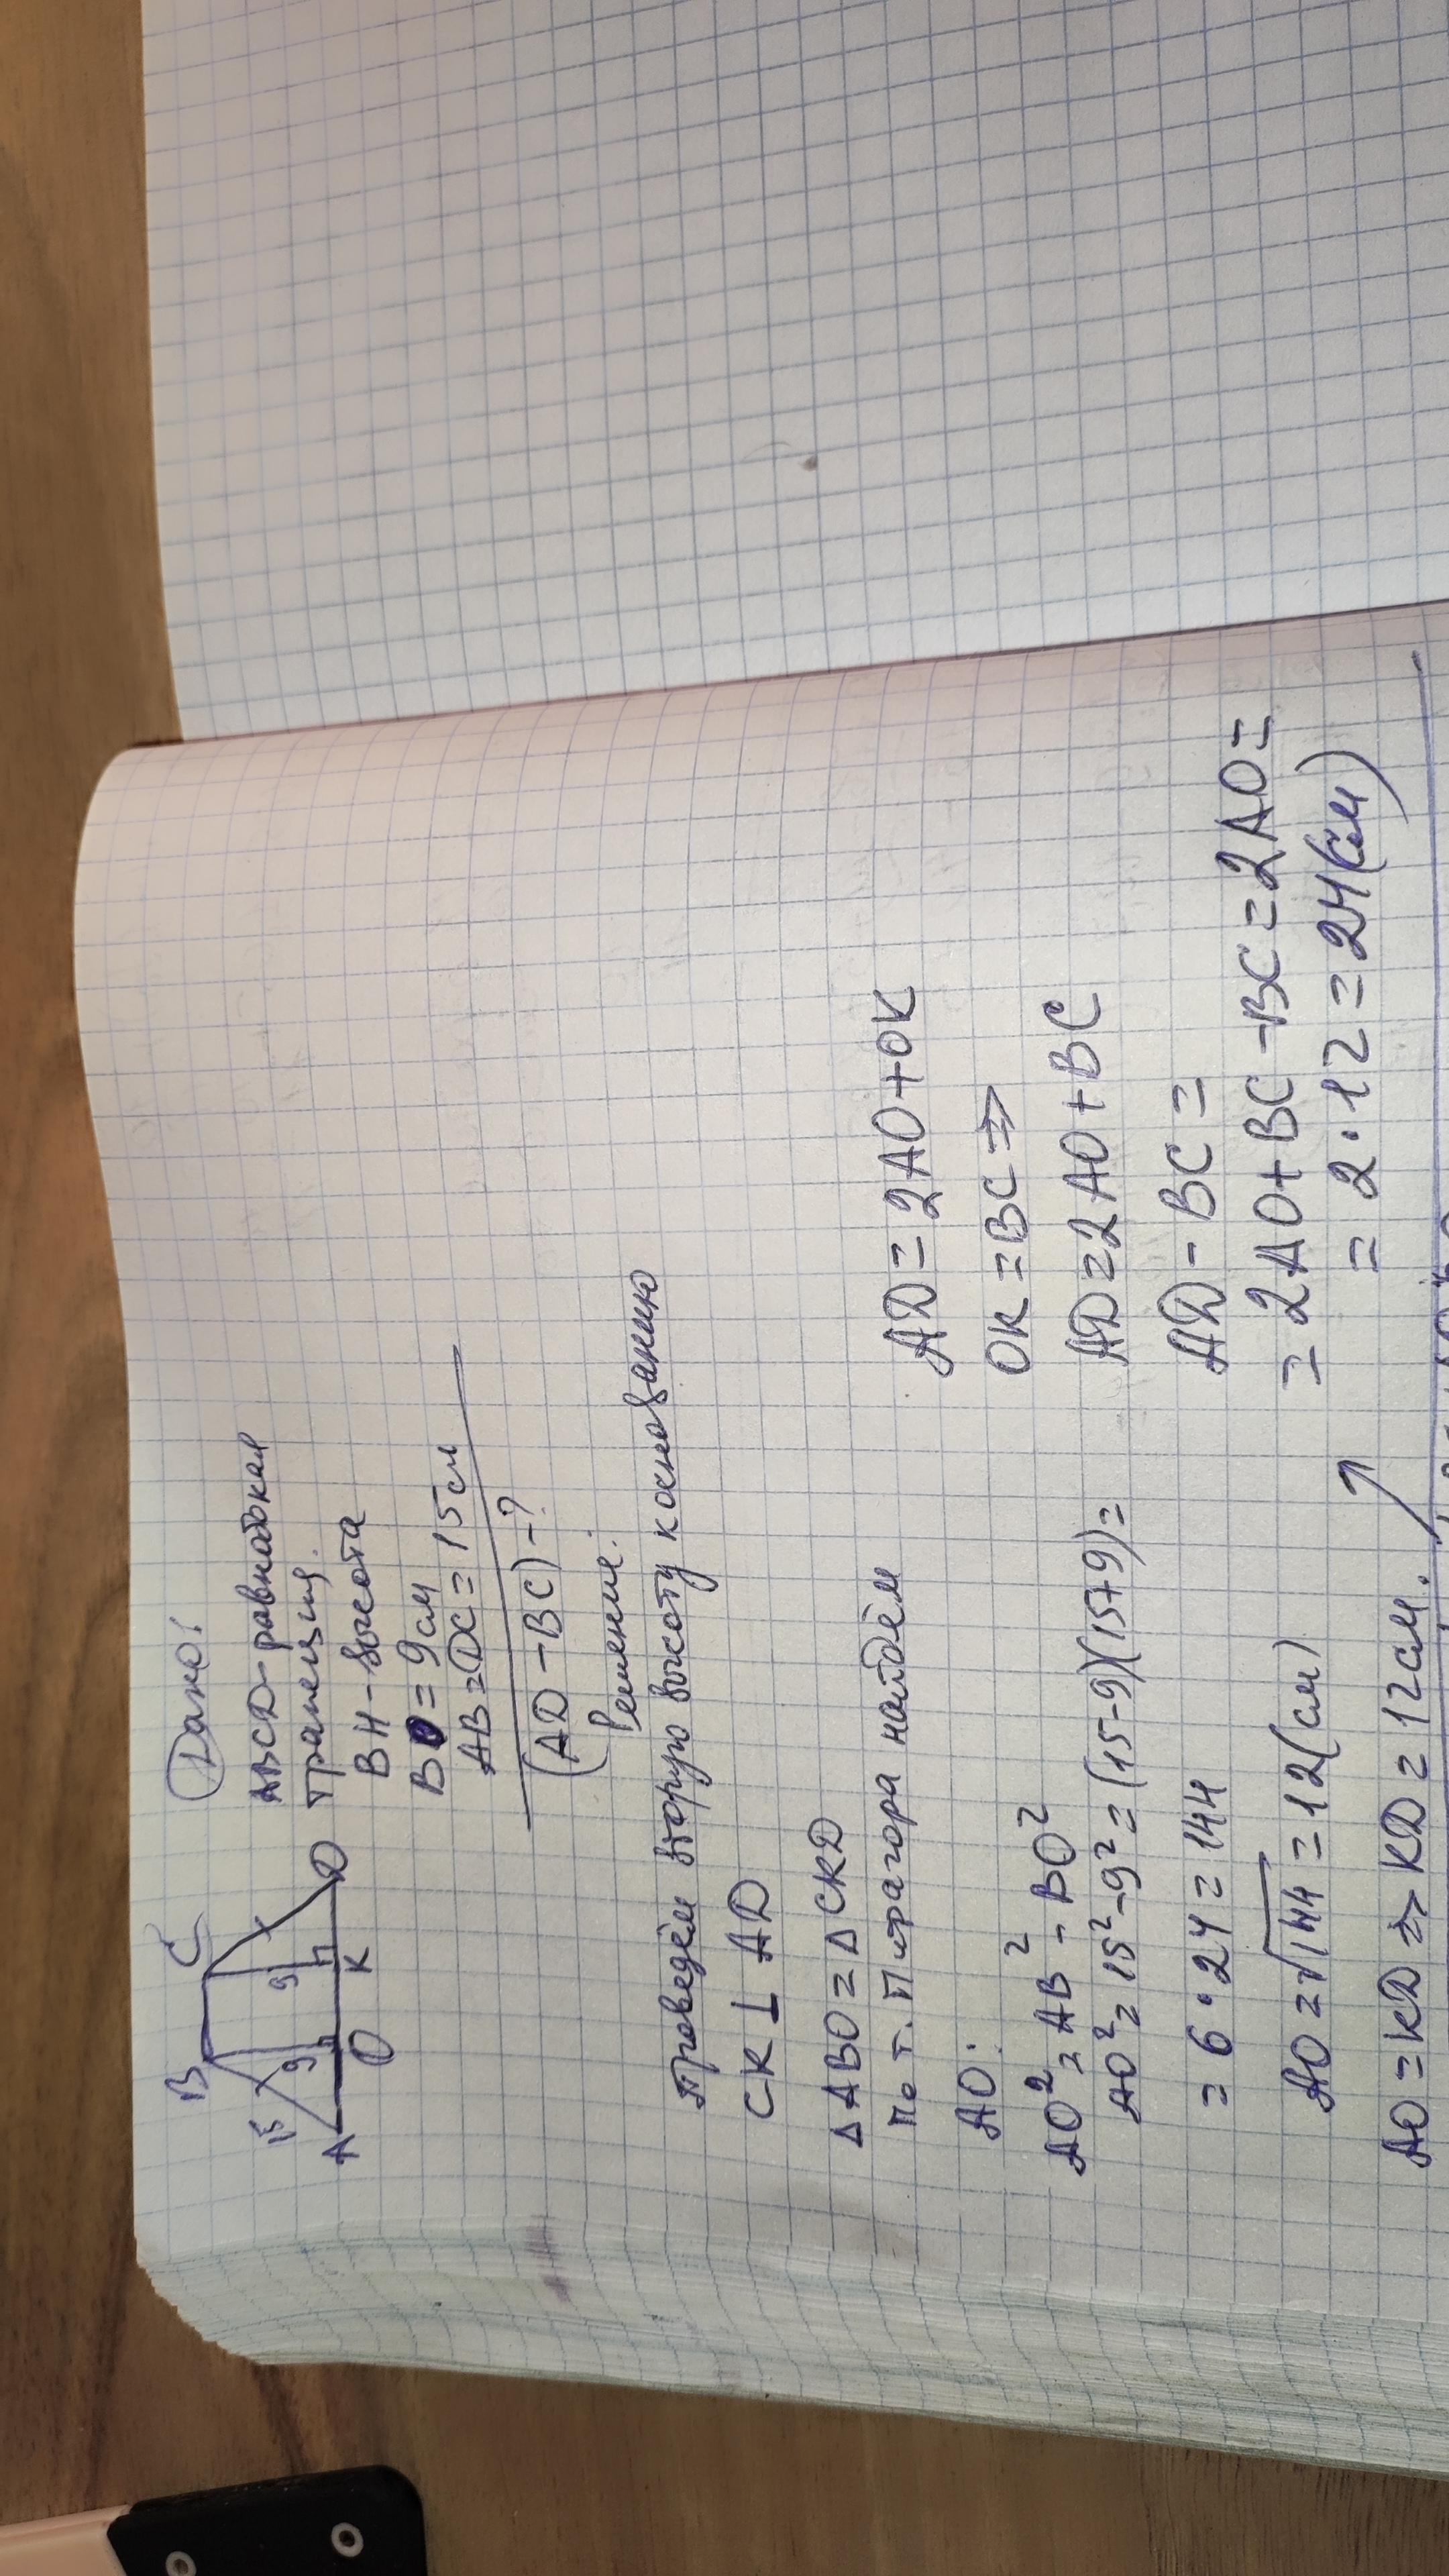 B C
15 9 9
A O K D
Дано:
ABCD-равнобокая
трапеция.
BH-высота
BO=9см
AB=DC=15см
(AD-BC)-?
Решение:
Проведём вторую высоту к основанию
CK⊥AD
△ABO=△CKD
По т. Пифагора найдём
AO:
AO²=AB²-BO²
AO²=15²-9²=(15-9)(15+9)=
=6·24=144
AO=√144=12(см)
AO=KD⇒KD=12см.
AD=2AO+OK
OK=BC⇒
AD=2AO+BC
AD-BC=
=2AO+BC-BC=2AO=
=2·12=24(см)